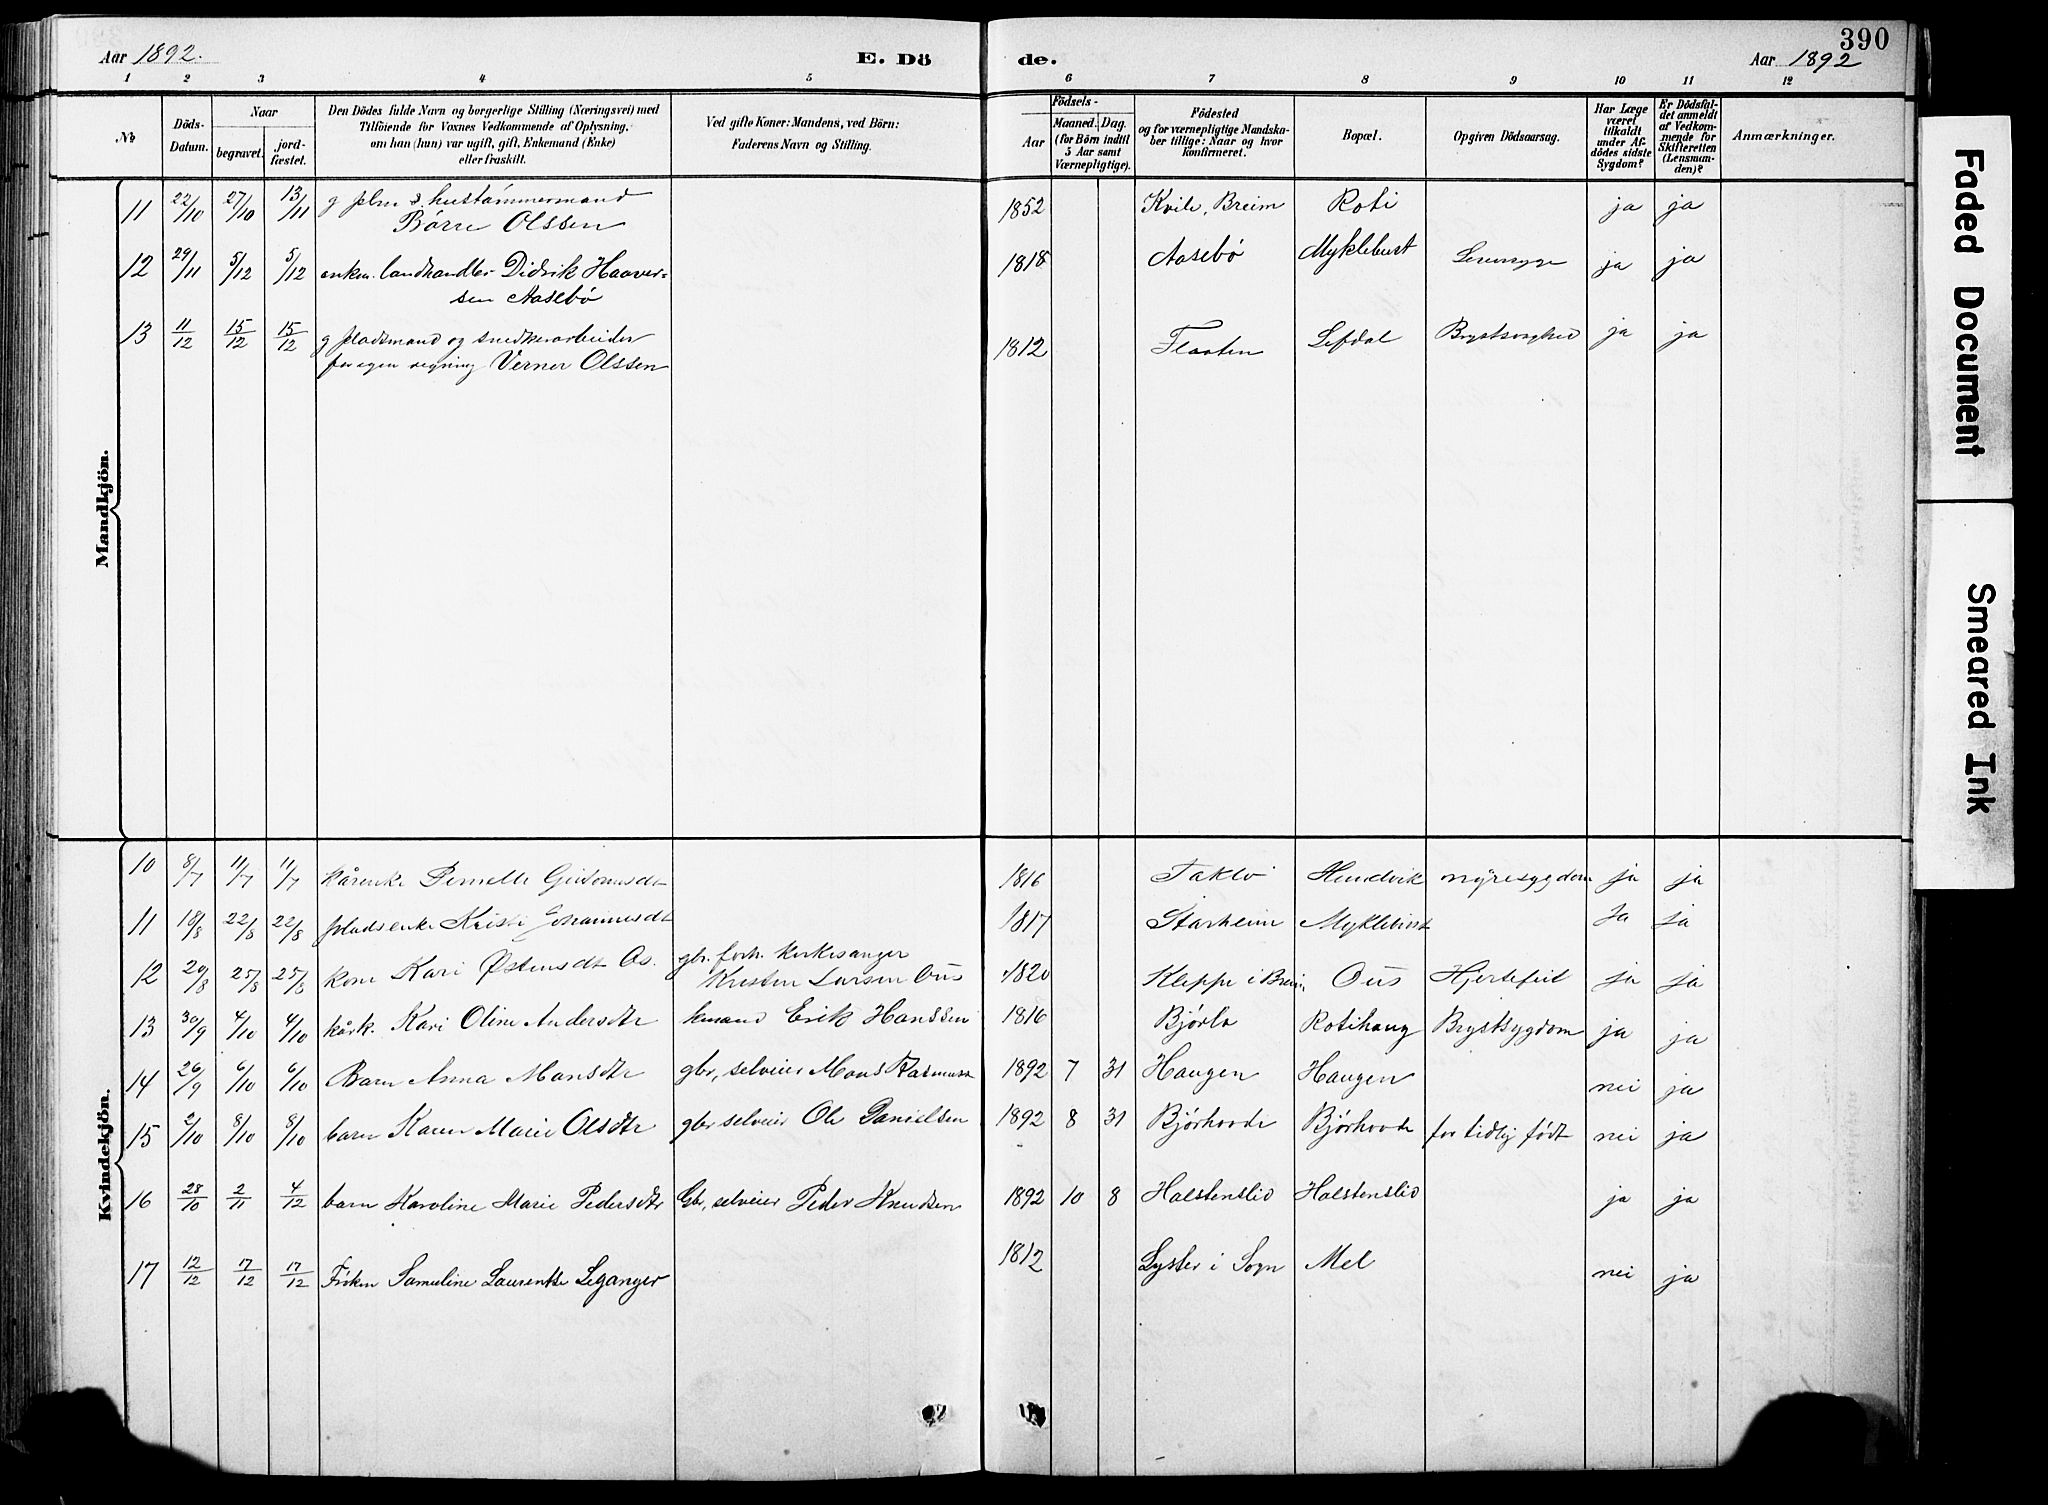 390
Aar 1892.
E. Dö
de.
Aar 1892
1 2 3 4 5 6 7 8 9 10 11 12
No
Döds-
Datum.
Naar
begravet.
jord-
fæstet.
Den Dödes fulde Navn og borgerlige Stilling (Næringsvei) med
Tilföiende for Voxnes Vedkommende af Oplysning,
om han (hun) var ugift, gift, Enkemand (Enke)
eller fraskilt.
Ved gifte Koner: Mandens, ved Börn:
Faderens Navn og Stilling.
Födsels-
Aar
Maaned. Dag.
(for Börn indtil
5 Aar samt
Værnepligtige).
Födested
og for værnepligtige Mandska-
ber tillige: Naar og hvor
konfirmeret.
Bopæl.
Opgiven Dödsaarsag.
Har Læge
været
tilkaldt
under Af-
dödes sidste
Sygdom?
Er Dödsfal-
det anmeldt
af Vedkom-
mende for
Skifteretten
(Lensman-
den)?
Anmærkninger.
Mandkjön.
11 22/10 27/10 13/11 g plm s. hustömmermand 1852 Kvile, Breim Roti ja ja
Börre Olssen
12 29/11 5/12 5/12 enkm. landhandler Didrik Haaver- 1818 Aasebø Myklebust ja ja
sen Aasebø
13 11/12 15/12 15/12 g pladsmand og snedkerarbeider 1812 Flaaten Lefdal ja ja
for egen regning Verner Olssen
Kvindekjön.
10 8/7 11/7 11/7 kårenke Pernelle 1816 Taklo Hundvik nyresygdom ja ja
11 18/8 22/8 22/8 pladsenke Kristi Johannesdt 1817 Starheim Myklebust Ja ja
12 20/8 25/8 25/8 kone Kari Østensdt Os. gbr. forh. kirkesanger 1820 Kleppe i Breim Ous Hjertefeil ja ja
Kristen Larsen Ous
13 30/9 4/10 4/10 kårk. Kari Oline Andersdtr kmand Erik Hanssen 1816 Bjørlo Rotihaug Brystsygdom ja ja
14 26/9 6/10 6/10 Barn Anna Monsdtr gbr, selveier Mons Rasmuss 1892 7 31 Haugen Haugen nei ja
15 2/10 8/10 8/10 barn Karen Marie Olsdtr gbr selveier Ole Danielsen 1892 8 31 Bjørhovde Bjørhovde for tidlig født nei ja
16 28/10 2/11 4/12 barn Karoline Marie Pedersdtr Gbr, selveier Peder Knudsen 1892 10 8 Holstenslid Holstenslid ja ja
17 12/12 17/12 17/12 Frøken Samuline Laurentse Leganger 1812 Lyster i Sogn Mel nei ja
Faded Document
Smeared Ink